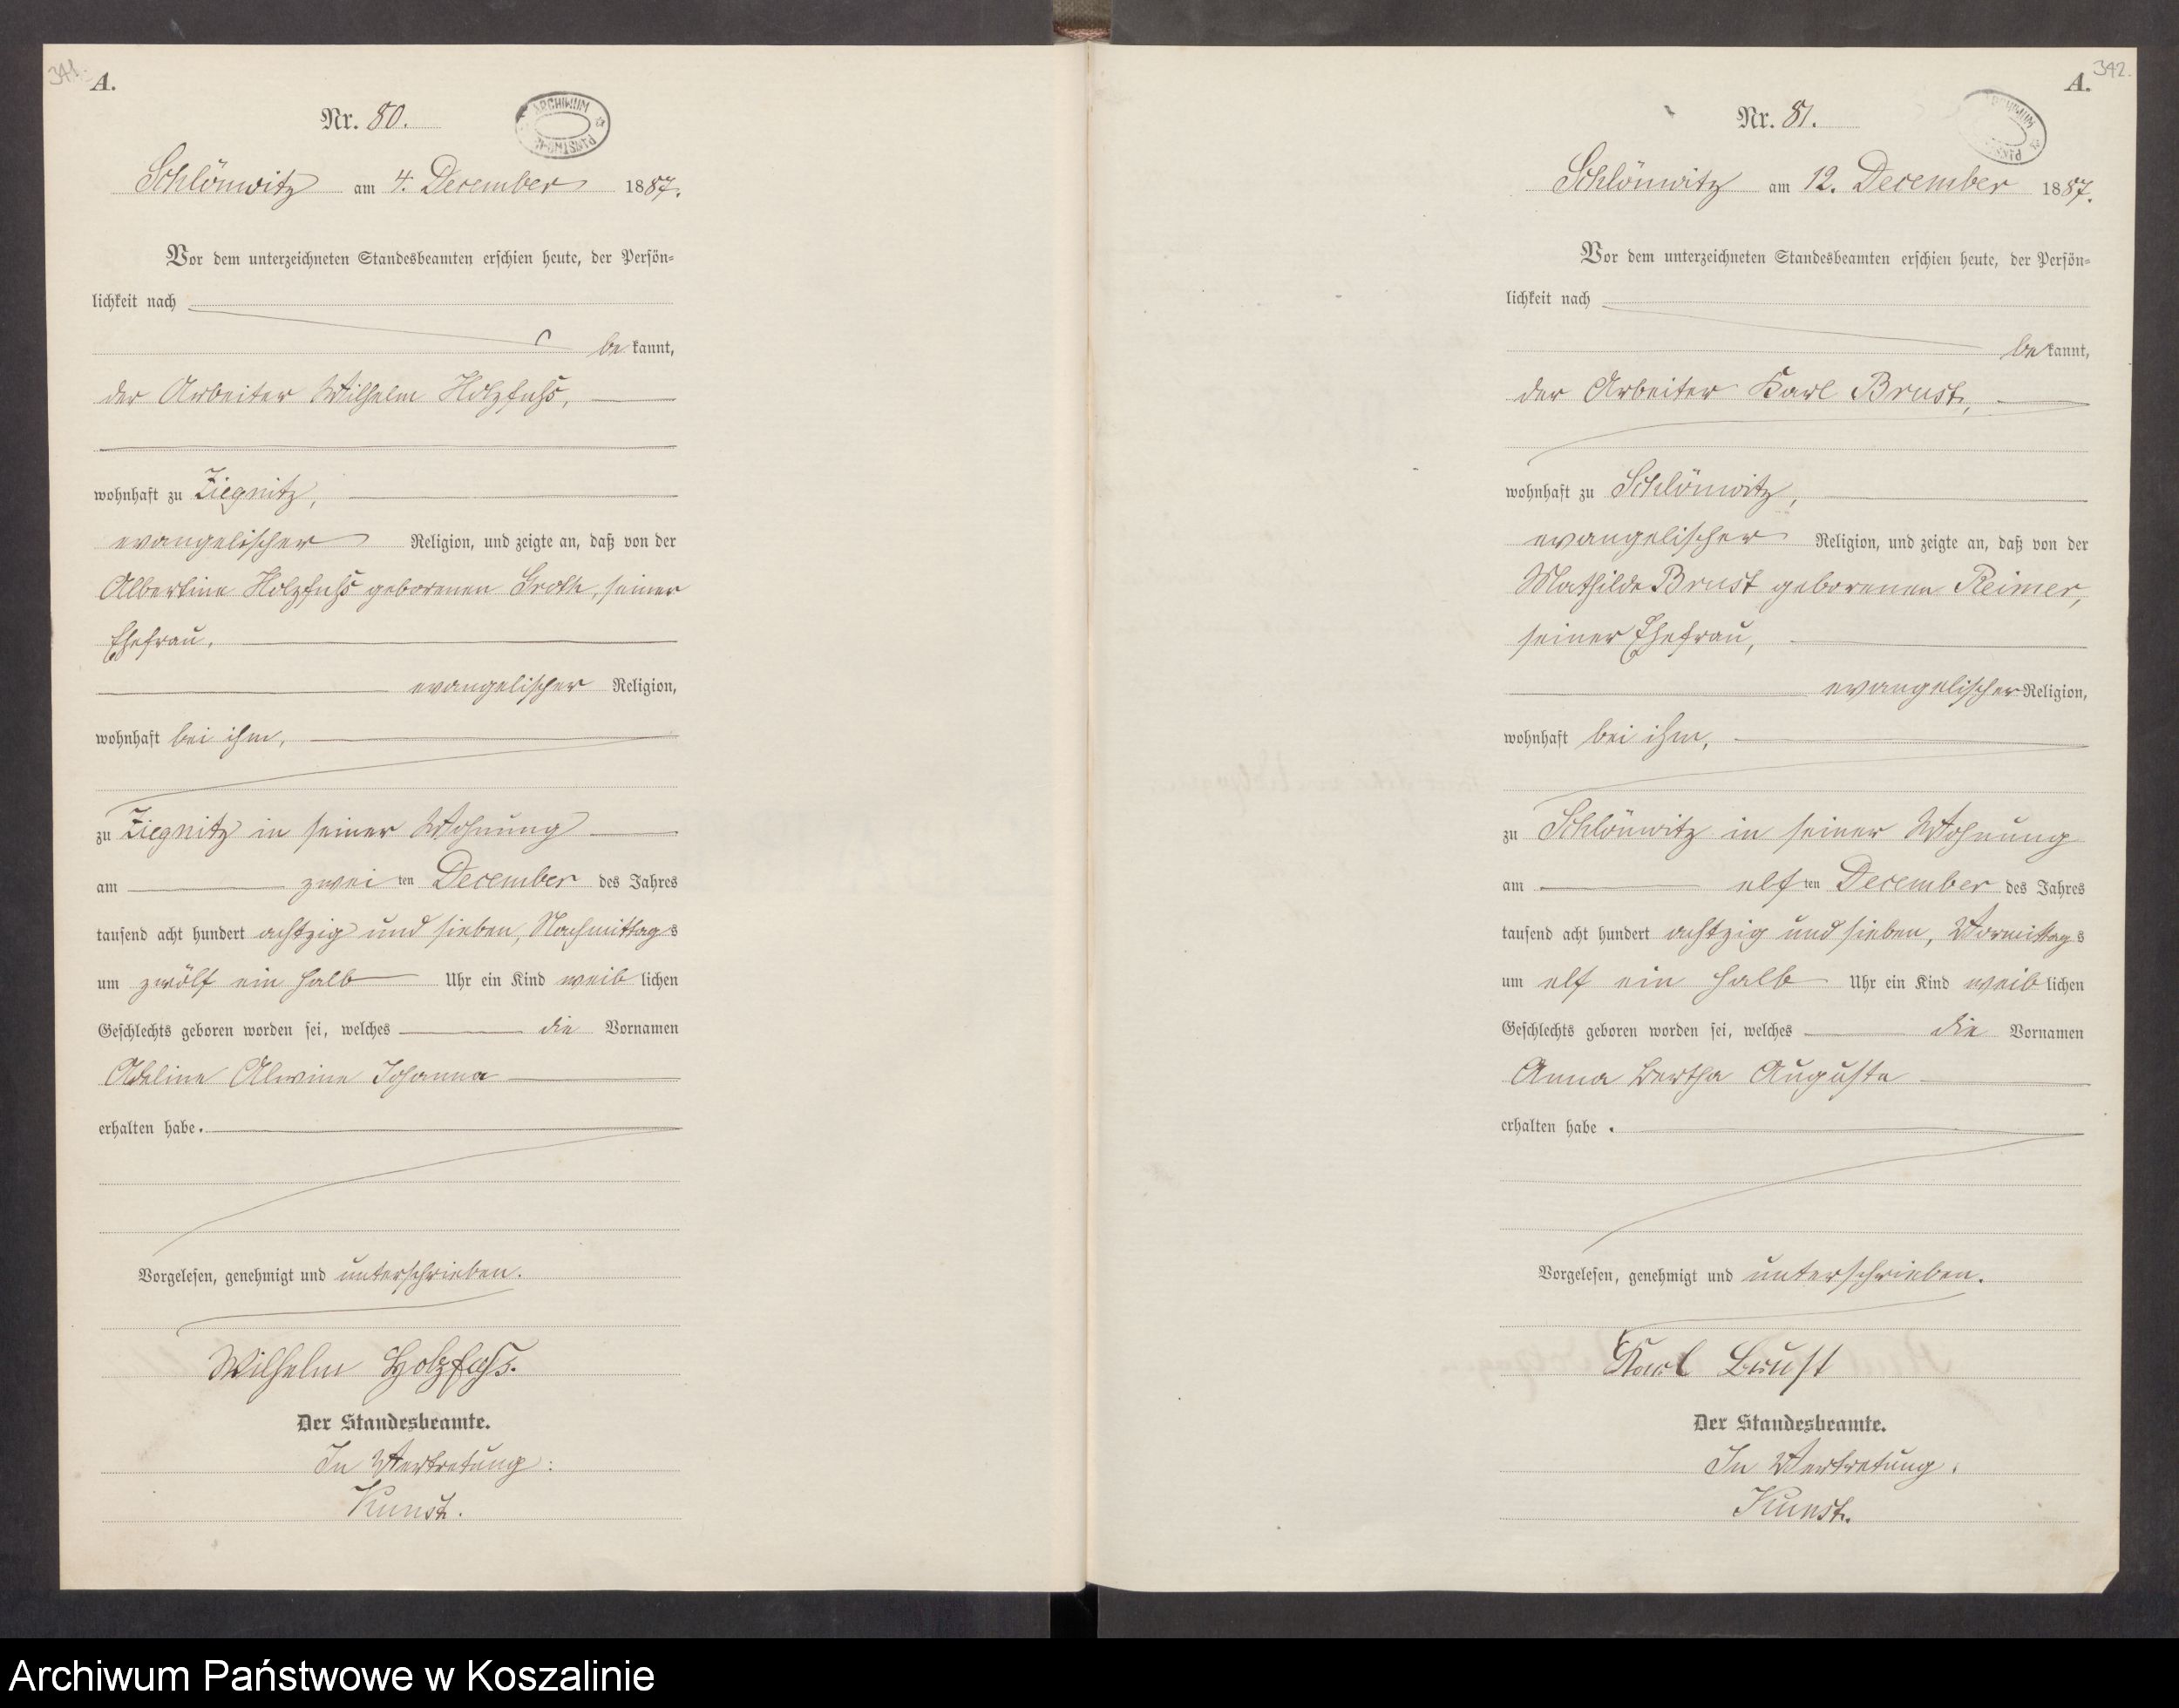 341.
A.
Nr. 80.
ARCHIWUM
PAŃSTWOWE
Schlönwitz am 4. December 1887.
Vor dem unterzeichneten Standesbeamten erschien heute, der Persön-
lichkeit nach
bekannt,
der Arbeiter Wilhelm Holzfuhs,
wohnhaft zu Ziegnitz,
evangelischer Religion, und zeigte an, daß von der
Albertine Holzfuhs geborenen Groth, seiner
Ehefrau,
evangelischer Religion,
wohnhaft bei ihm,
zu Ziegnitz in seiner Wohnung
am zweiten December des Jahres
tausend acht hundert achtzig und sieben, Nachmittags
um zwölf ein halb Uhr ein Kind weiblichen
Geschlechts geboren worden sei, welches die Vornamen
Adeline Alwine Johanna
erhalten habe.
Vorgelesen, genehmigt und unterschrieben.
Wilhelm Holzfuhs.
Der Standesbeamte.
In Vertretung:
Kunst.
342.
A.
Nr. 81.
Schlönwitz am 12. December 1887.
Vor dem unterzeichneten Standesbeamten erschien heute, der Persön-
lichkeit nach
bekannt,
der Arbeiter Karl Brust,
wohnhaft zu Schlönwitz,
evangelischer Religion, und zeigte an, daß von der
Mathilde Brust geborenen Reimer,
seiner Ehefrau,
evangelischer Religion,
wohnhaft bei ihm,
zu Schlönwitz in seiner Wohnung
am elften December des Jahres
tausend acht hundert achtzig und sieben, Vormittags
um elf ein halb Uhr ein Kind weiblichen
Geschlechts geboren worden sei, welches die Vornamen
Anna Bertha Auguste
erhalten habe.
Vorgelesen, genehmigt und unterschrieben.
Karl Brust
Der Standesbeamte.
In Vertretung:
Kunst.
Archiwum Państwowe w Koszalinie